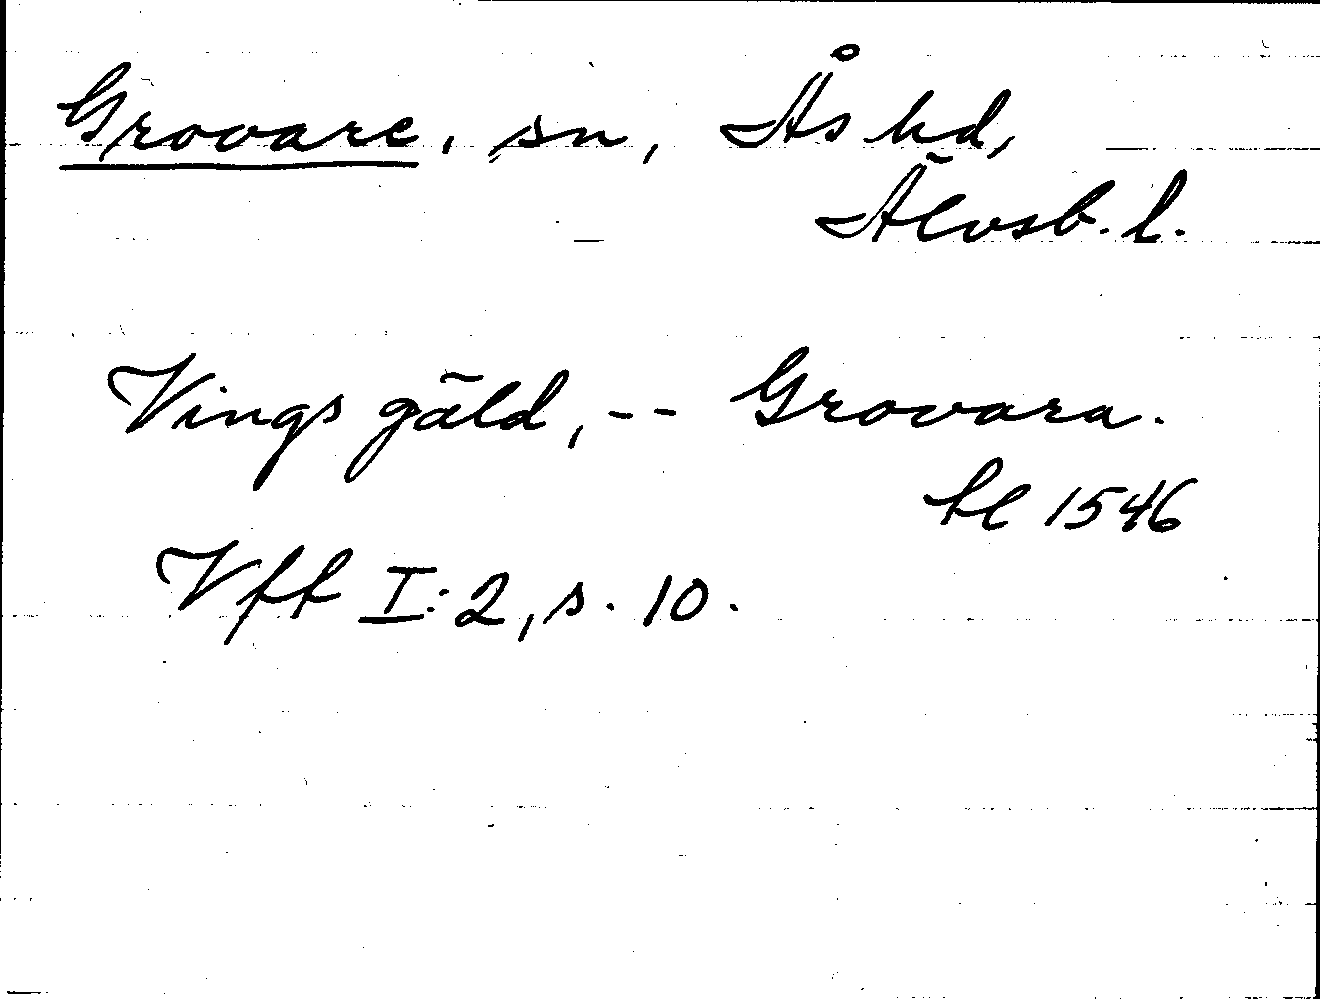 Grovare, sn, Ås hd,
Älvsb. l.
Vings gäld, -- Grovara.
hl 1546
Vff I:2, s. 10.